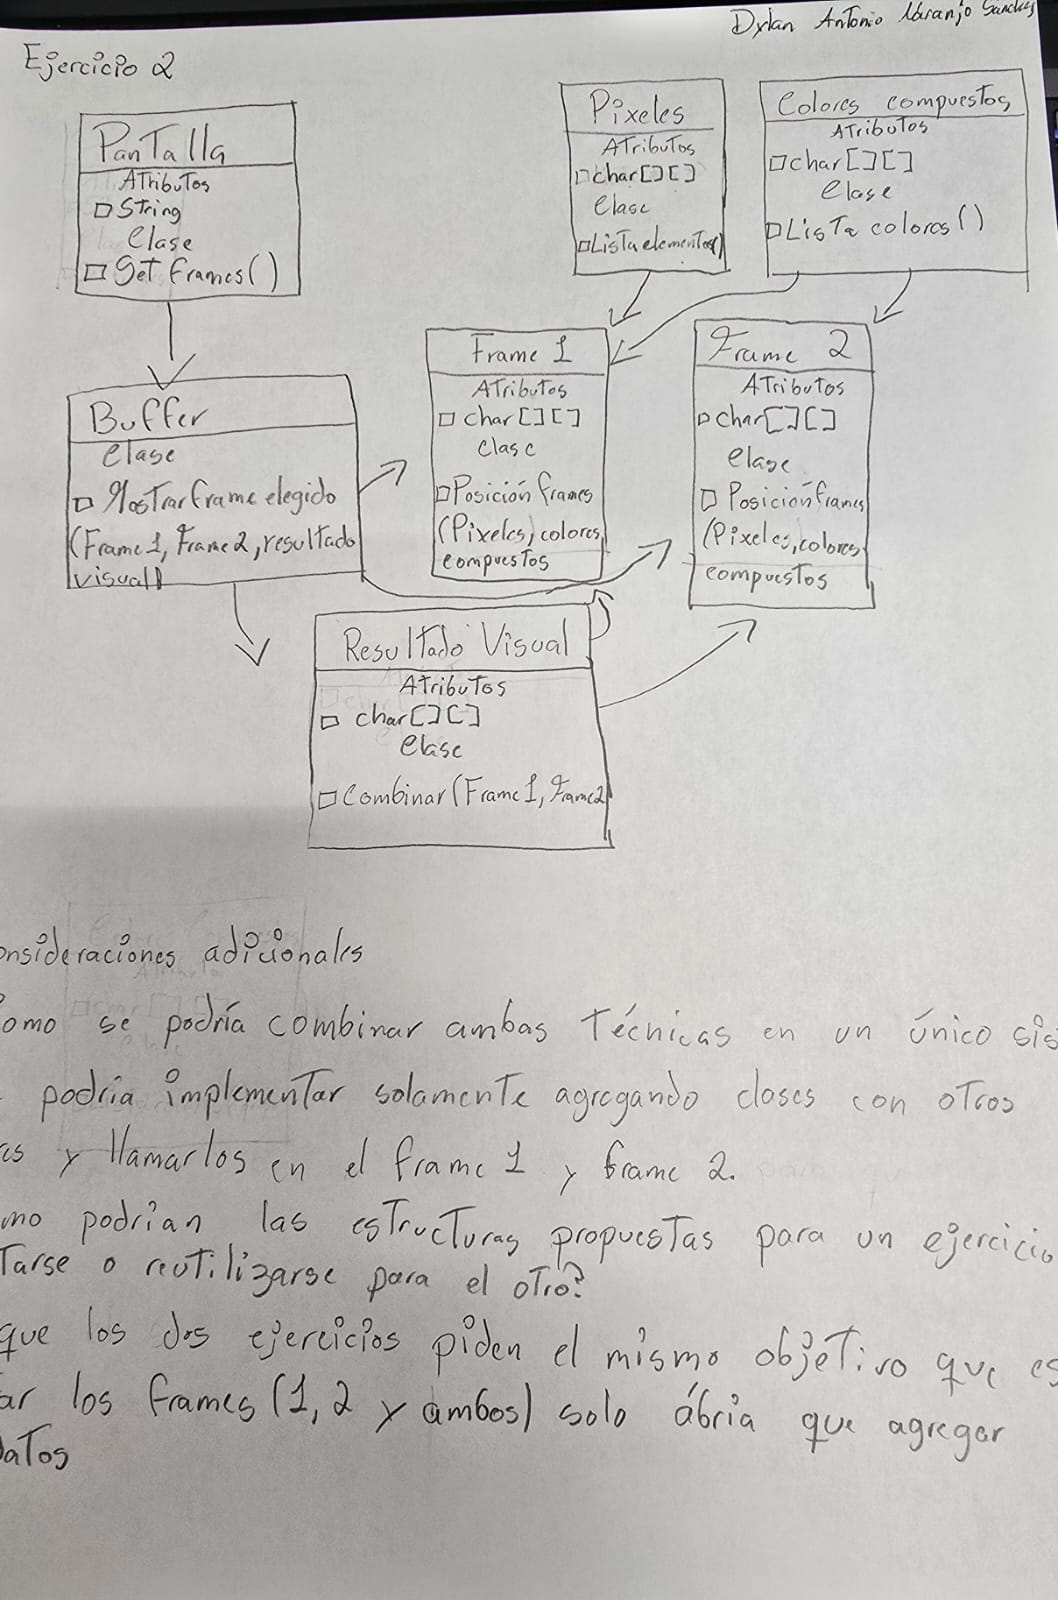 Dylan Antonio Naranjo Sanchez
Ejercicio 2
Pantalla
Atributos
String
Clase
get frames()
Pixeles
Atributos
char[][]
Clase
Lista elementos()
Colores compuestos
Atributos
char[][]
Clase
Lista colores()
Buffer
Clase
Mostrar frame elegido
(Frame 1, Frame 2, resultado
visual)
Frame 1
Atributos
char[][]
Clase
Posición frames
(Pixeles, colores
compuestos
Frame 2
Atributos
char[][]
Clase
Posición frames
(Pixeles, colores
compuestos
Resultado Visual
Atributos
char[][]
Clase
Combinar (Frame 1, Frame 2
onsideraciones adicionales
omo se podría combinar ambas técnicas en un único sis
podría implementar solamente agregando clases con otros
es y llamarlos en el frame 1 y frame 2.
mo podrian las estructuras propuestas para un ejercicio
tarse o reutilizarse para el otro?
que los dos ejercicios piden el mismo objetivo que es
ar los frames (1, 2 y ambos) solo ábria que agregar
datos